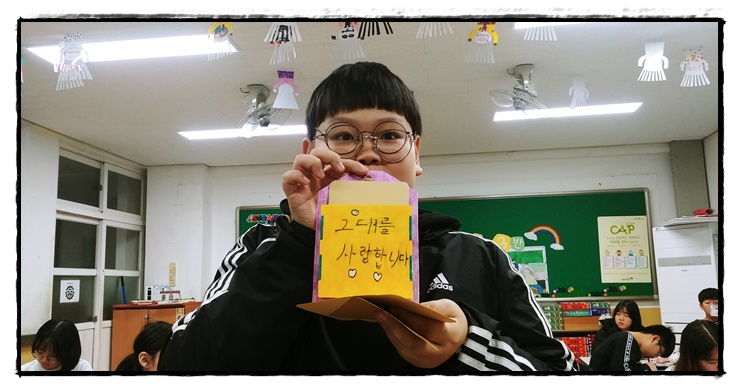 그대를
사랑합니다
adidas
CAP